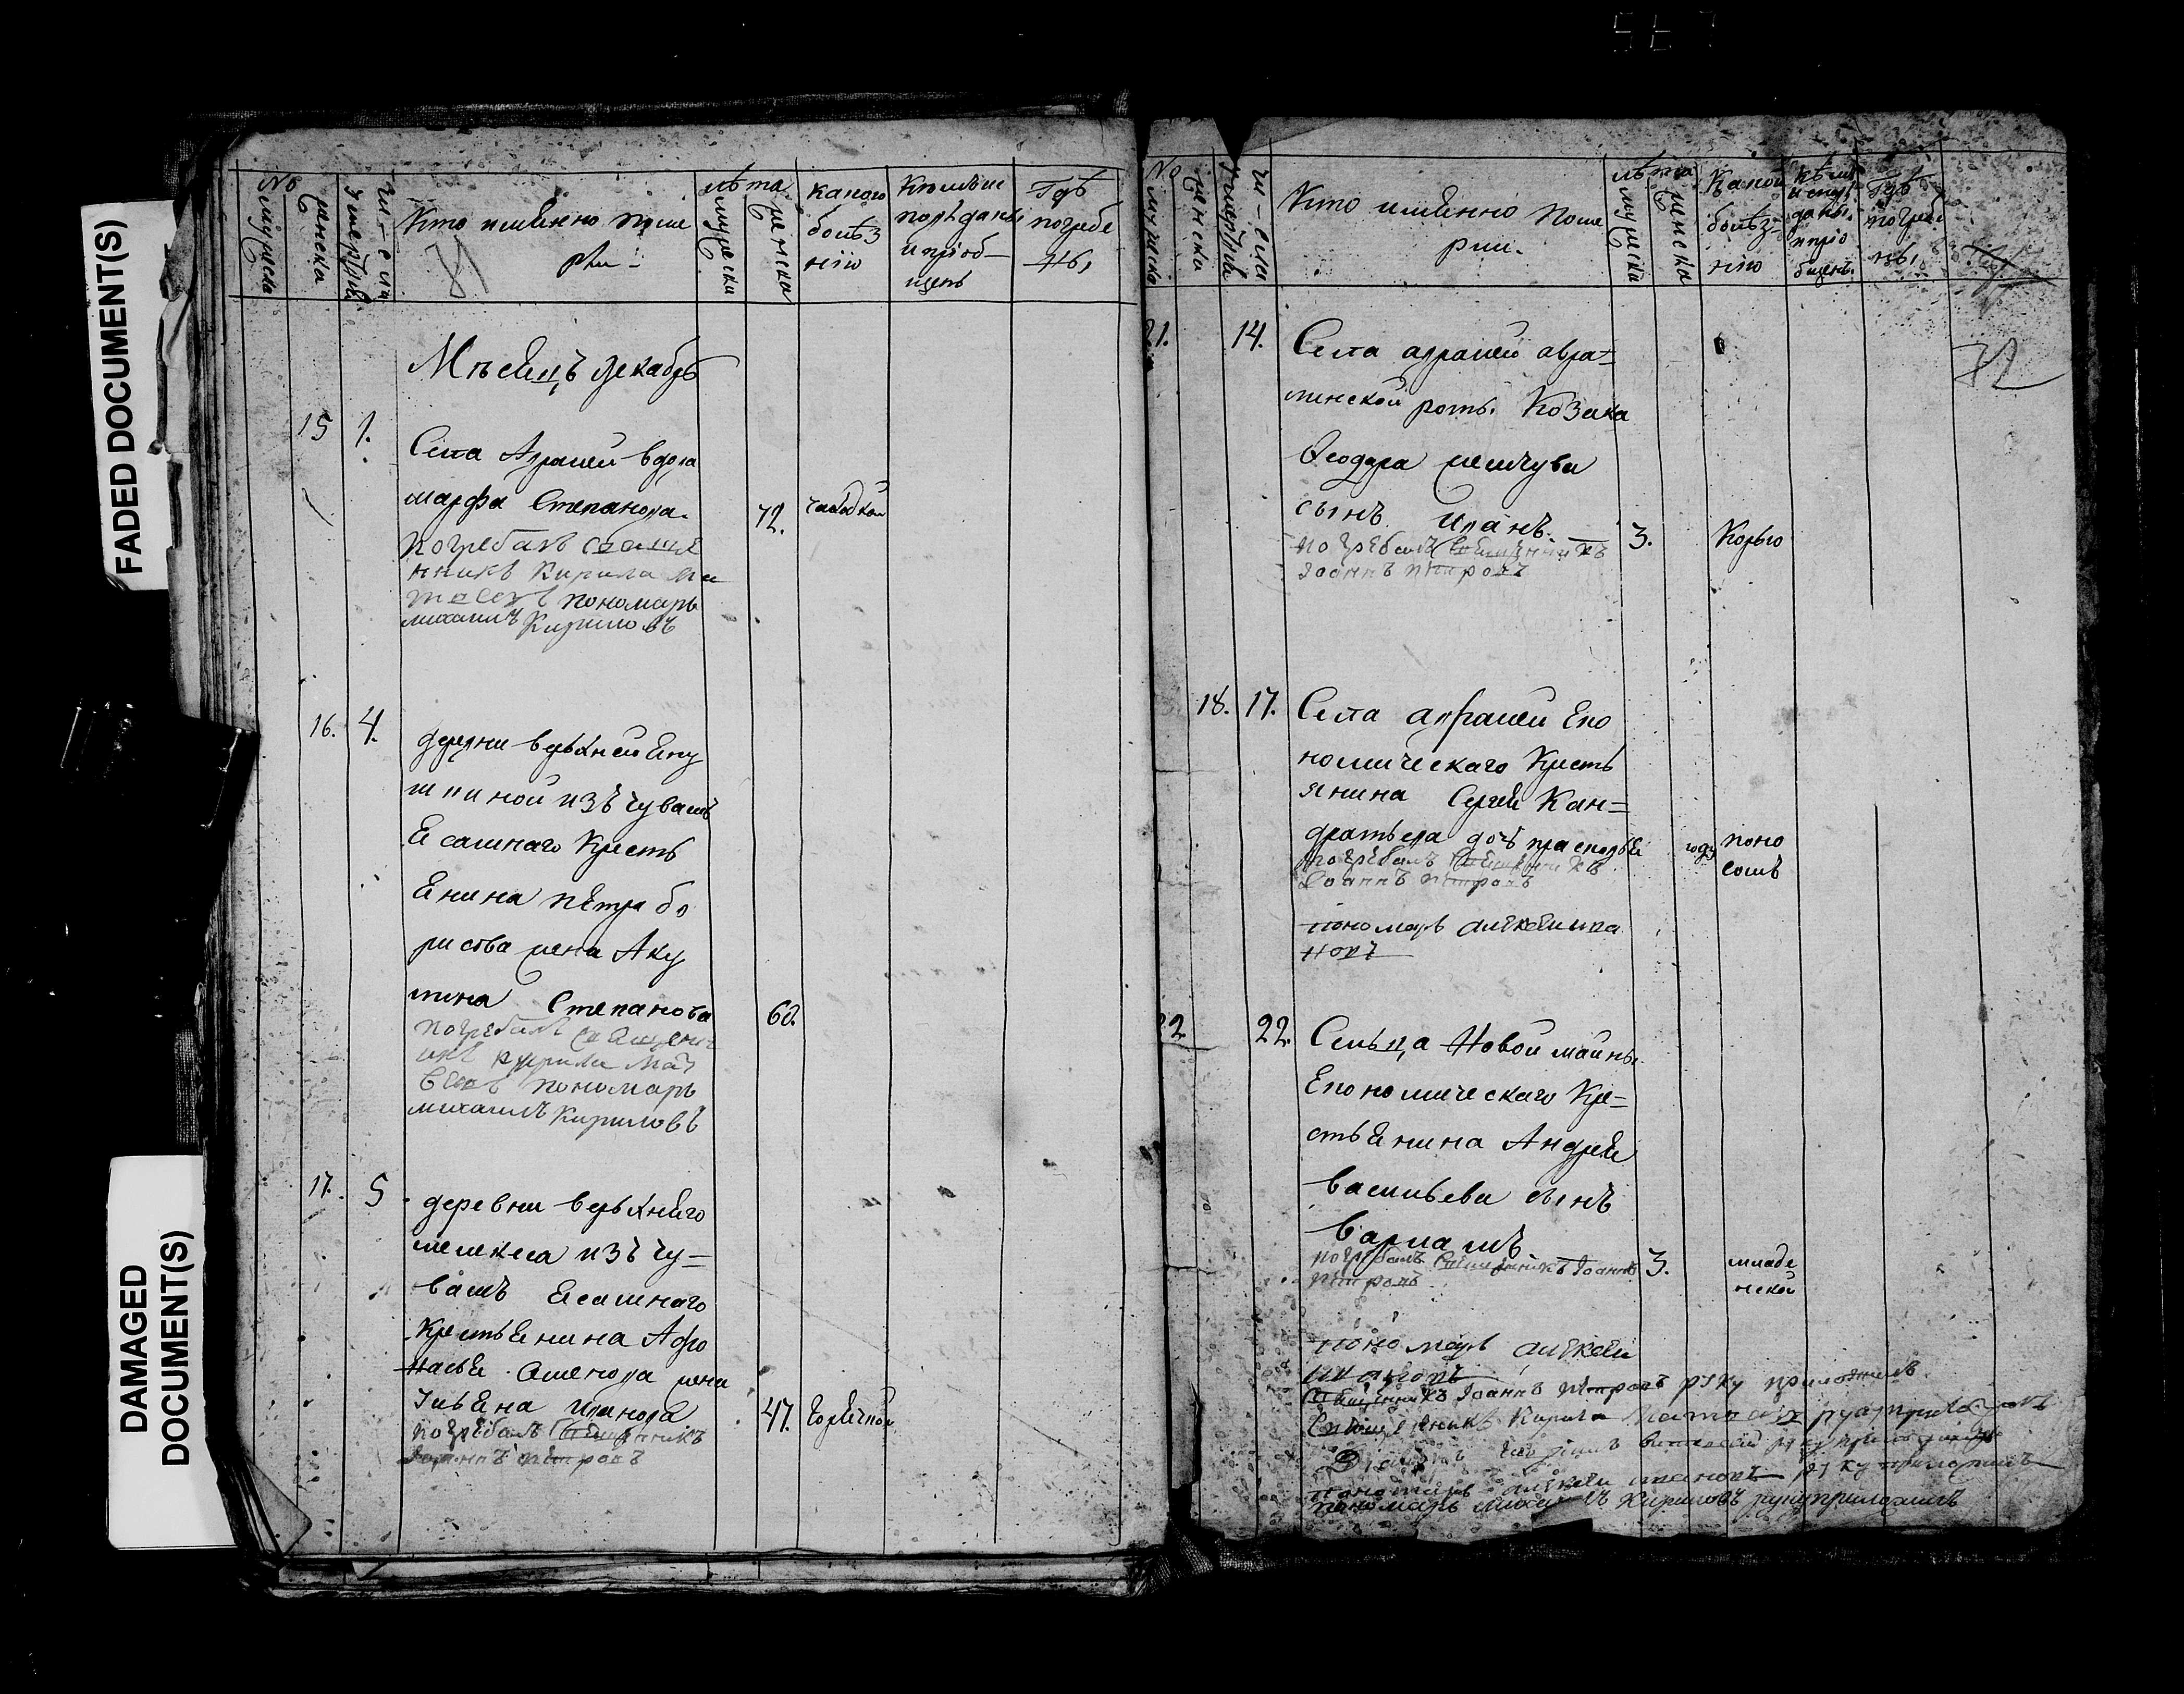 FADED DOCUMENT(S)
DAMAGED
DOCUMENT(S)
№ мужеска
женска
чи-сла
умертвій
Кто имѣнно поме
рли-
лѣта
мужеска
женска
какою
болѣз
нію
Кѣмъ ис
повѣданы
и пріоб-
щенъ
Гдѣ
погребе
ны,
Мѣсецъ декабрь
15 1.
Села Авралей вдова
марфа Степанова.
72.
погребалъ Свяще
нникъ Кирила Ма
твеевъ пономарь
михаилъ Кириловъ
16. 4.
деревни верьхней Еку
шкиной изъ чувашъ
Ясашнаго Кресть
янина петра бо
рисова жена Аку
лина Степанова
60.
погребалъ Священ
икъ Кирила Мат
веевъ пономарь
михаилъ Кириловъ
17. 5.
деревни верьхняго
мелекеса изъ чу-
вашъ Ясашнаго
Крестьянина Афо
насья Семенова жена
Ульяна Иванова
47. горячкой
погребалъ Священикъ
Іоаннъ петровъ
№ мужеска
женска
чи-сла
умертвій
Кто имѣнно поме
рли.
лѣта
мужеска
женска
Какой
болѣз-
нію
Кѣмъ
испове
даны.
и пріо
бщенъ.
Гдѣ
погребе
ны,
72
21. 14.
Села авралей авра-
линской роты. Козака
Ѳеодора
сынъ Иванъ.
3. Корью
погребалъ Священникъ
Іоаннъ петровъ
18. 17.
Села авралей Еко
номическаго Кресть
янина Сергея Кан-
дратьева дочь прасковья
году поно
сомъ
погребалъ Священникъ
Іоаннъ петровъ
пономарь алексей ива
новъ
22. 22.
Сельца Новой майны
Економическаго Кре-
стьянина Андрея
васильева сынъ
варламъ
3. младе
нской
погребалъ Священникъ Іоаннъ
петровъ
пономарь алексей
ивановъ
Священникъ Іоаннъ петровъ руку приложилъ
Священникъ Кирила Матвеевъ руку приложилъ
руку приложилъ
пономарь алексей ивановъ руку приложилъ
пономарь михаилъ Кириловъ руку приложилъ